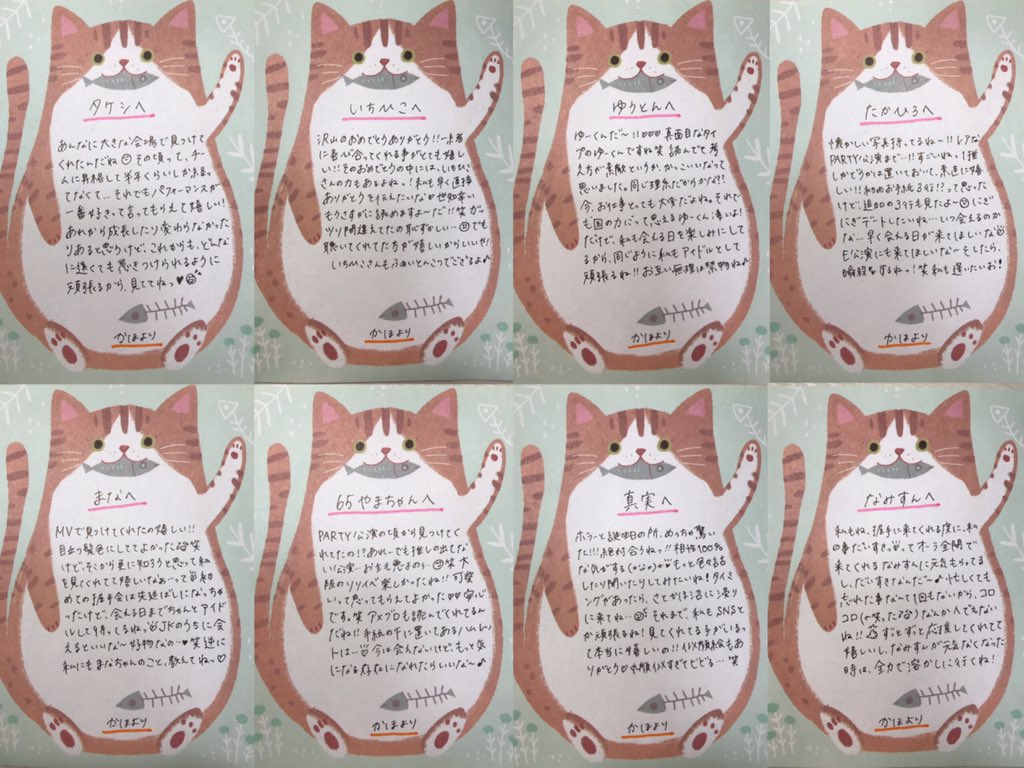 タケシへ
あんなに大きな会場で見つけて
くれたんだね その頃って、チー
ムに昇格して半年くらいしか経っ
てなくて…それでもパフォーマンスが
一番好きって言ってもらえて嬉しい!
あれから成長したり変わらなかった
りあると思うけど、これからも、どんな
に遠くても惹きつけられるように
頑張るから、見ててねっ♥
かほより
いちひこへ
沢山のおめでとうありがとう!!一緒
に喜び合ってくれる事がとても嬉し
い!!そのおめでとうの中には、いちひこ
さんの力もあるよねっ!私も早く直接
ありがとうを伝えたいな♡世知辛い
もうさすがに読めますよ〜だ!!笑ガ
ッツリ間違えたの恥ずかしい…でも
聴いてくれてた方が嬉しいからいい!!
いちひこさんも
かほより
ゆうとんへ
ゆーくんだ〜!!♡♡♡真面目なタイ
プのゆーくんですね笑 読んでても考
え方が素敵というか、かっこいいなって
思いました。同じ理系だからかな?!
今、お仕事とっても大変だよね。それで
も国の力にって思えるゆーくん凄いよ!
だけど、私も会える日を楽しみにして
るから、同じように私もアイドルとして
頑張るね!!お互い無理は禁物ね♪
かほより
たかひろへ
懐かしい写真持ってるね〜!!レアな
PARTY公演まで…!!すごいねっ!推
しかどうかは置いておいて、素直に嬉
しい!!初めお手紙3行!?って思った
けど、追加の3行も見たよ にぎ
にぎデートしたいね…いつ会えるのか
な…早く会える日が来てほしいな
E公演にも来てほしいな〜そしたら、
瞬殺するねっ!笑私も逢いたいお!
かほより
まなへ
MVで見つけてくれたの嬉しい!!
目立つ髪色にしててよかった 笑
けど、そこから更に知ろうと思って私
を見てくれてて嬉しいなぁって 初
めての握手会は先延ばしになっちゃ
ったけど、会える日までちゃんとアイド
ルしてり待ってるね、JKのうちに会
えるといいな〜好物なの…♥笑逆に
私にもまなちゃんのこと、教えてね〜♡
かほより
65やまちゃんへ
PARTY公演の頃から見つけてく
れたの!?あれ〜でも推しの出てな
い公演…おろち思うのっ…笑大
阪のリリイベ楽しかったね!!可愛
いって思ってもらえてよかった♡♡安心
です。笑 アメブロも読んでくれてるん
だね!!手紙の下に置いてあるハムレッ
トは… 今は会えないけど、もっと気
になる存在になれたらいいな〜♪
かほより
真実へ
ホラーと謎味の所、めっちゃ驚い
た!!!絶対合うねっ!!相性100%
な気がする もっと色々お話
したり聞いたりしてみたいね!タイミ
ングがあったら、さとかほ沼に浸り
に来てね… それまで、私もSNSと
か頑張るね!見てくれてる子がいるっ
て本当に嬉しいの!!似顔絵もあ
りがとう♡お顔小さすぎてびびる…笑
かほより
なみすんへ
私もね、握手に来てくれる度に、私
の事だいすき って オーラ全開で
来てくれるなみすんに元気もらってる
し、だいすきなんだ〜♪忙しくても
忘れた事なんて1回もないから、コロ
コロ(一笑、た谷)なんかへでもない
ね!! ずっとずっと応援してくれてて
嬉しいし、なみすんが元気なくなった
時は、全力で溶かしに行くね!
かほより